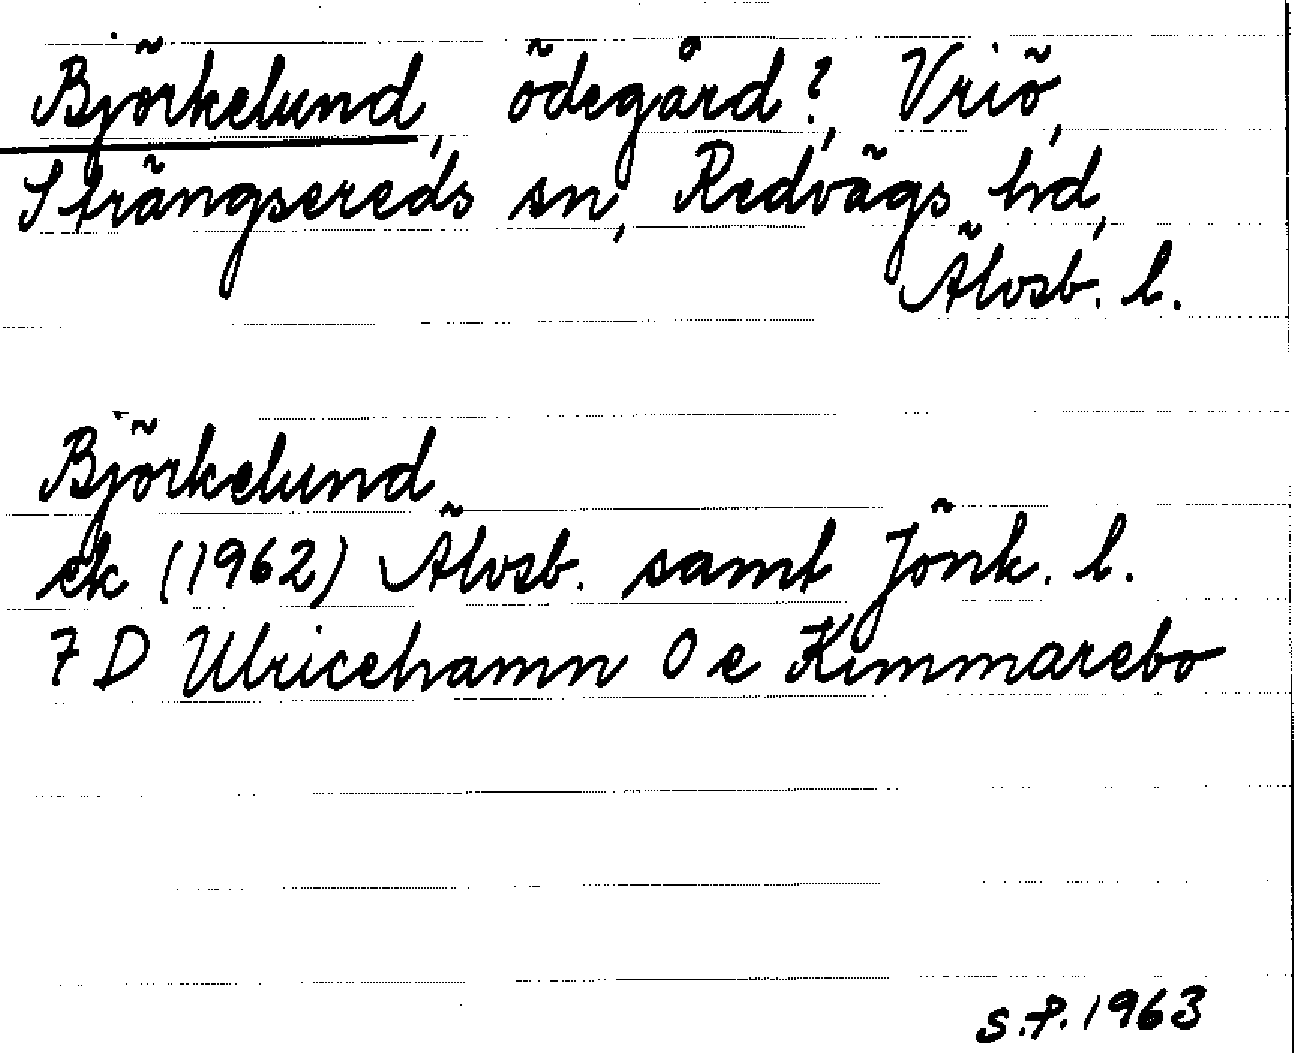 Björkelund, ödegård?, Vriö,
Strängsereds sn, Redvägs hd,
Älvsb. l.
Björkelund
ek (1962) Älvsb. samt Jönk. l.
7 D Ulricehamn 0 e Kimmarebo
S.P. 1963